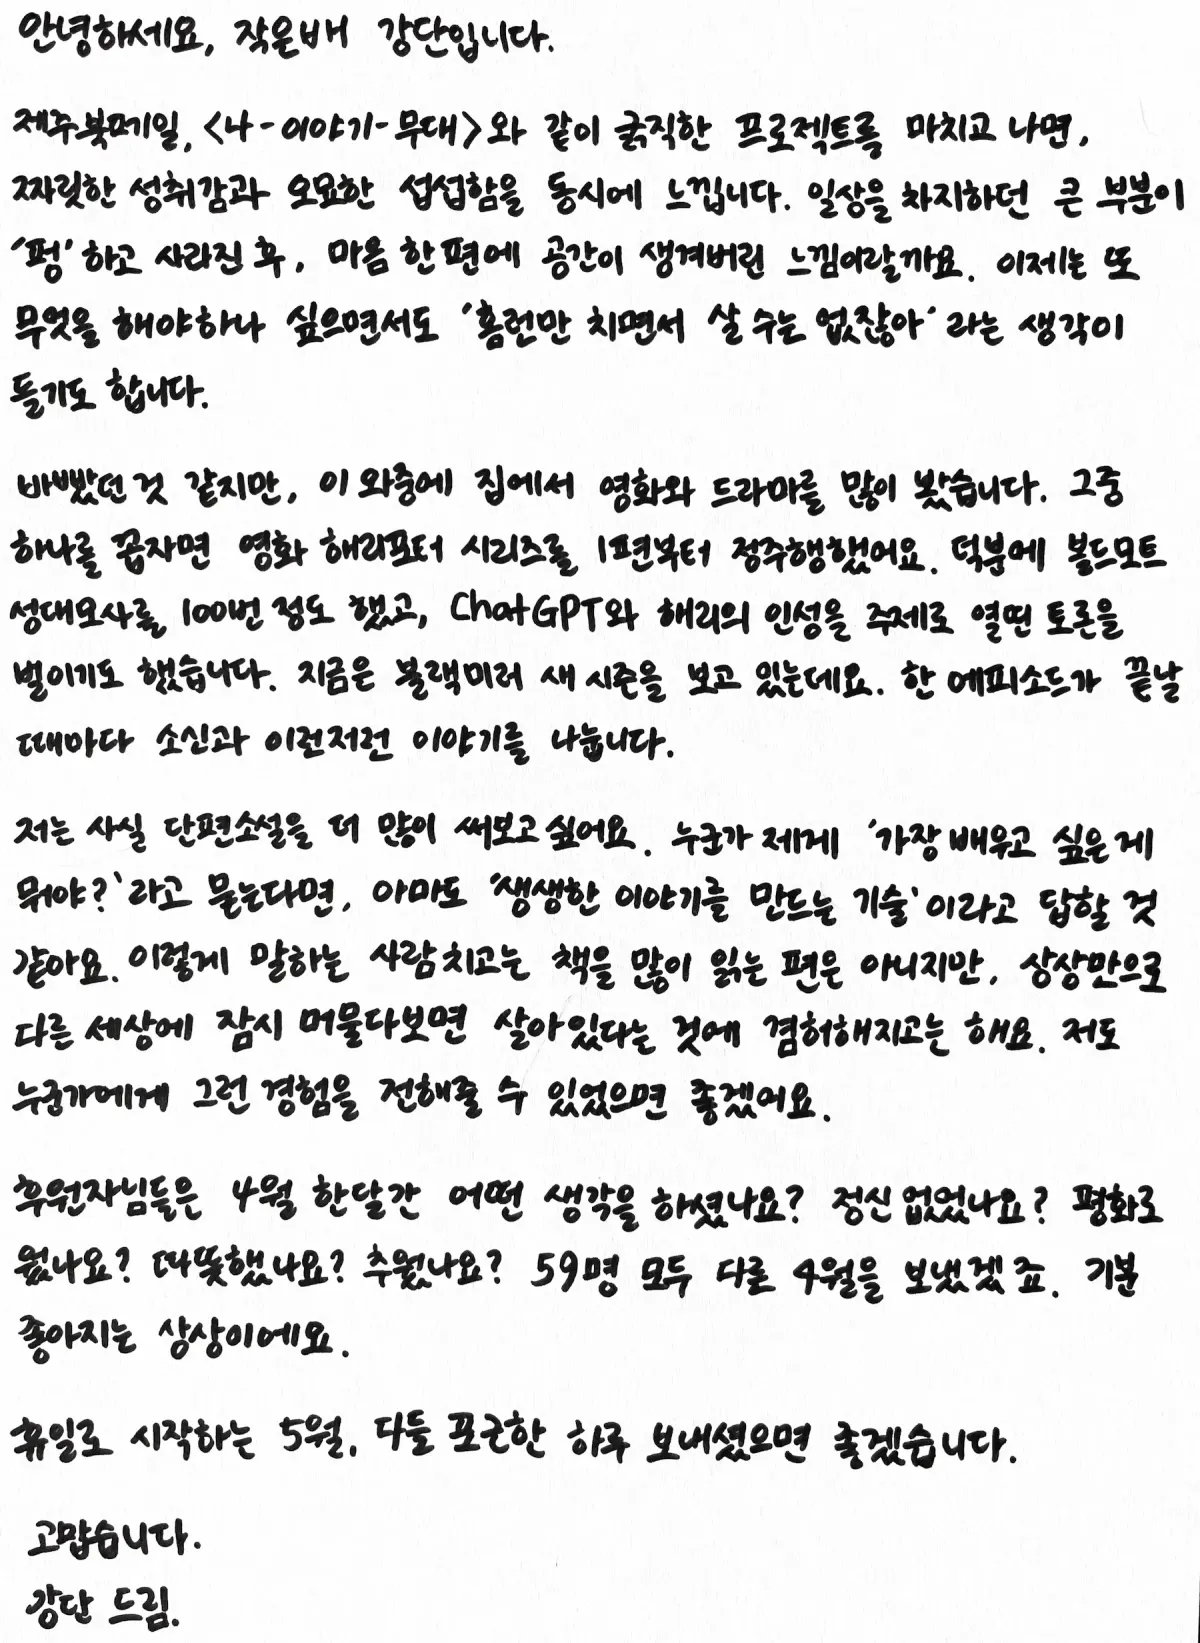 안녕하세요, 작은배 강단입니다.
제주북페일, <나-이야기-무대>와 같이 굵직한 프로젝트를 마치고 나면,
짜릿한 성취감과 오묘한 섭섭함을 동시에 느낍니다. 일상을 차지하던 큰 부분이
'펑'하고 사라진 후, 마음 한 편에 공간이 생겨버린 느낌이랄까요. 이제는 또
무엇을 해야하나 싶으면서도 '홈런만 치면서 살 수는 없잖아' 라는 생각이
들기도 합니다.
바빴던 것 같지만, 이 와중에 집에서 영화와 드라마를 많이 봤습니다. 그중
하나를 꼽자면 영화 해리포터 시리즈를 1편부터 정주행했어요. 덕분에 볼드모트
성대모사를 100번 정도 했고, ChatGPT와 해리의 인성을 주제로 열띤 토론을
벌이기도 했습니다. 지금은 블랙미러 새 시즌을 보고 있는데요. 한 에피소드가 끝날
때마다 소신과 이런저런 이야기를 나눕니다.
저는 사실 단편소설을 더 많이 써보고 싶어요. 누군가 제게 '가장 배우고 싶은 게
뭐야?'라고 묻는다면, 아마도 '생생한 이야기를 만드는 기술'이라고 답할 것
같아요. 이렇게 말하는 사람치고는 책을 많이 읽는 편은 아니지만, 상상만으로
다른 세상에 잠시 머물다보면 살아있다는 것에 겸허해지고는 해요. 저도
누군가에게 그런 경험을 전해줄 수 있었으면 좋겠어요.
후원자님들은 4월 한달간 어떤 생각을 하셨나요? 정신없었나요? 평화로
웠나요? 따뜻했나요? 추웠나요? 59명 모두 다른 4월을 보냈겠죠. 기분
좋아지는 상상이에요.
휴일로 시작하는 5월, 다들 포근한 하루 보내셨으면 좋겠습니다.
고맙습니다.
강단 드림.